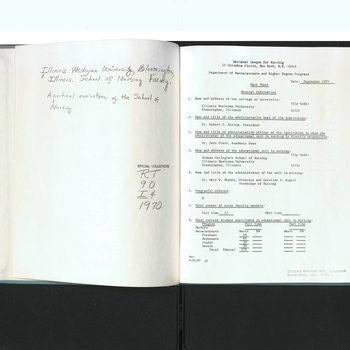 Illinois Wesleyan University, Bloomington,
Illinois. School of Nursing Faculty.
A critical evaluation of the School of
Nursing
SPECIAL COLLECTIONS
RT
90
I4
1970
National League for Nursing
10 Columbus Circle, New York, N.Y. 10019
Department of Baccalaureate and Higher Degree Programs
Date: September 1970
Fact Sheet
General Information
Name and address of the college or university:
Illinois Wesleyan University (Zip Code)
Bloomington, Illinois 61701
Name and title of the administrative head of the institution:
Dr. Robert S. Eckley, President
Name and title of the administrative officer of the institution to whom the
administrator of the educational unit in nursing is directly responsible:
Dr. John Clark, Academic Dean
Name and address of the educational unit in nursing:
Brokaw Collegiate School of Nursing
Illinois Wesleyan University (Zip Code)
Bloomington, Illinois 61701
Name and title of the administrator of the unit in nursing:
Dr. Mary D. Shanks, Director and Caroline F. Rupert
Professor of Nursing
Program(s) offered:
Total number of nurse faculty members:
Full time 17 Part time
Total current student enrollment in educational unit in nursing:
Program Full Time Part Time
Baccalaureate
Freshman
Sophomore
Junior
Senior
Total
Illinois Wesleyan Univ. Libraries
Bloomington, Ill. 61701